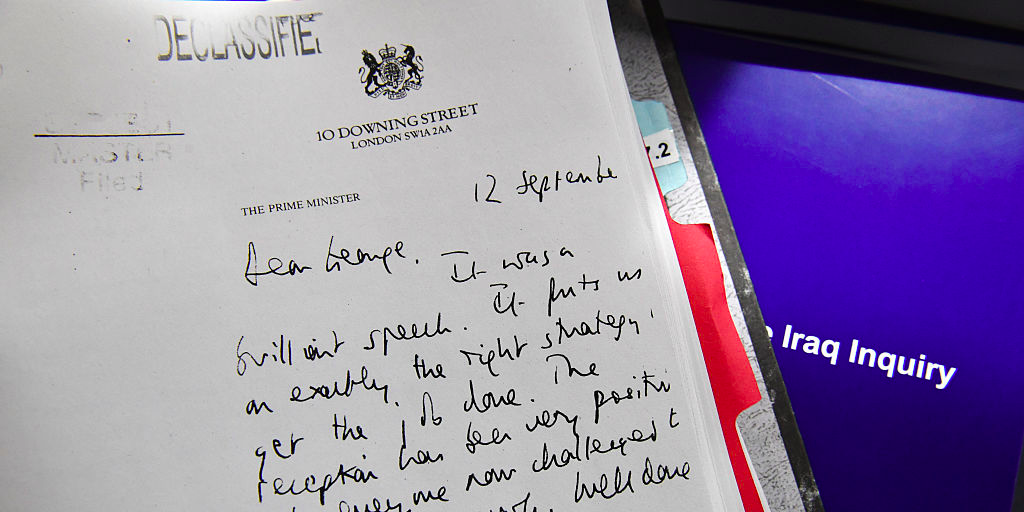 DECLASSIFIE
10 DOWNING STREET
LONDON SW1A 2AA
MASTER
Filed
THE PRIME MINISTER
12 Septembe
Dear George. It was a
brilliant speech. It puts us
on exactly the right strategy
get the job done. The
reception has been very positi
everyone now challenged t
Well done
7.2
Iraq Inquiry